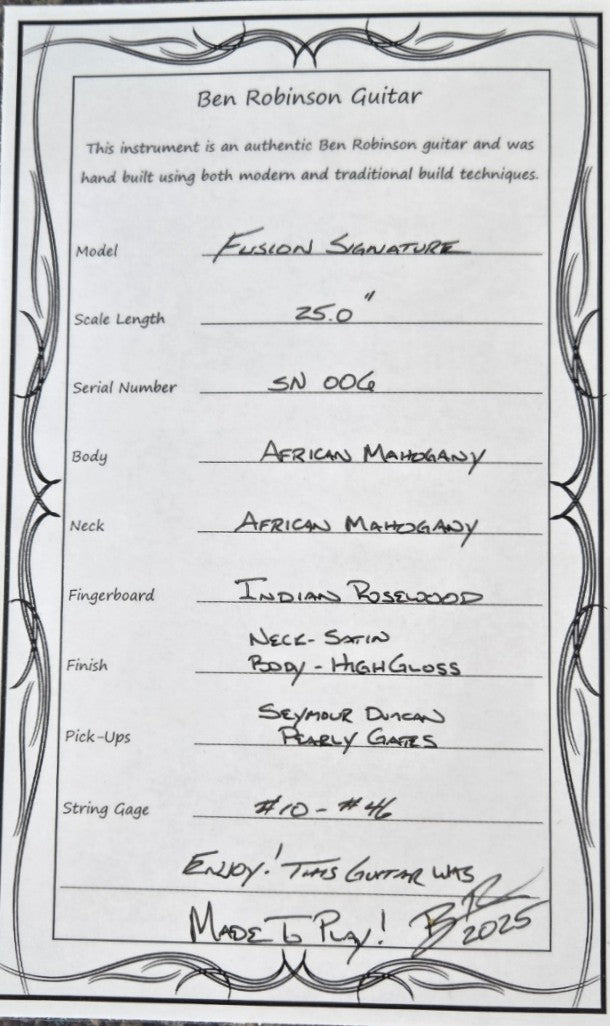 Ben Robinson Guitar
This instrument is an authentic Ben Robinson guitar and was
hand built using both modern and traditional build techniques.
Model FUSION SIGNATURE
Scale Length 25.0"
Serial Number SN 006
Body AFRICAN MAHOGANY
Neck AFRICAN MAHOGANY
Fingerboard INDIAN ROSEWOOD
NECK - SATIN
Finish BODY - HIGH GLOSS
SEYMOUR DUNCAN
Pick-Ups PEARLY GATES
String Gage #10 - #46
ENJOY! THIS GUITAR WAS
MADE TO PLAY! BR 2025